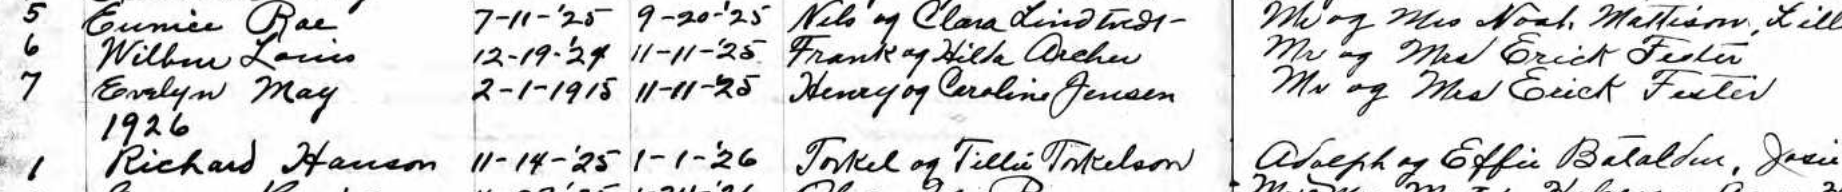 5 Eunice Rae 7-11-'25 9-20-'25 Nils og Clara Lindtvedt Mr og Mrs Noah Mattison, Lill
6 Wilbur Louis 12-19-'24 11-11-'25 Frank og Hilda Archer Mr og Mrs Erick Fester
7 Evelyn May 2-1-1915 11-11-'25 Henry og Caroline Jensen Mr og Mrs Erick Fester
1926
1 Richard Hanson 11-14-'25 1-1-'26 Torkel og Tillie Torkelson Adolph og Effie Batalden, Josie